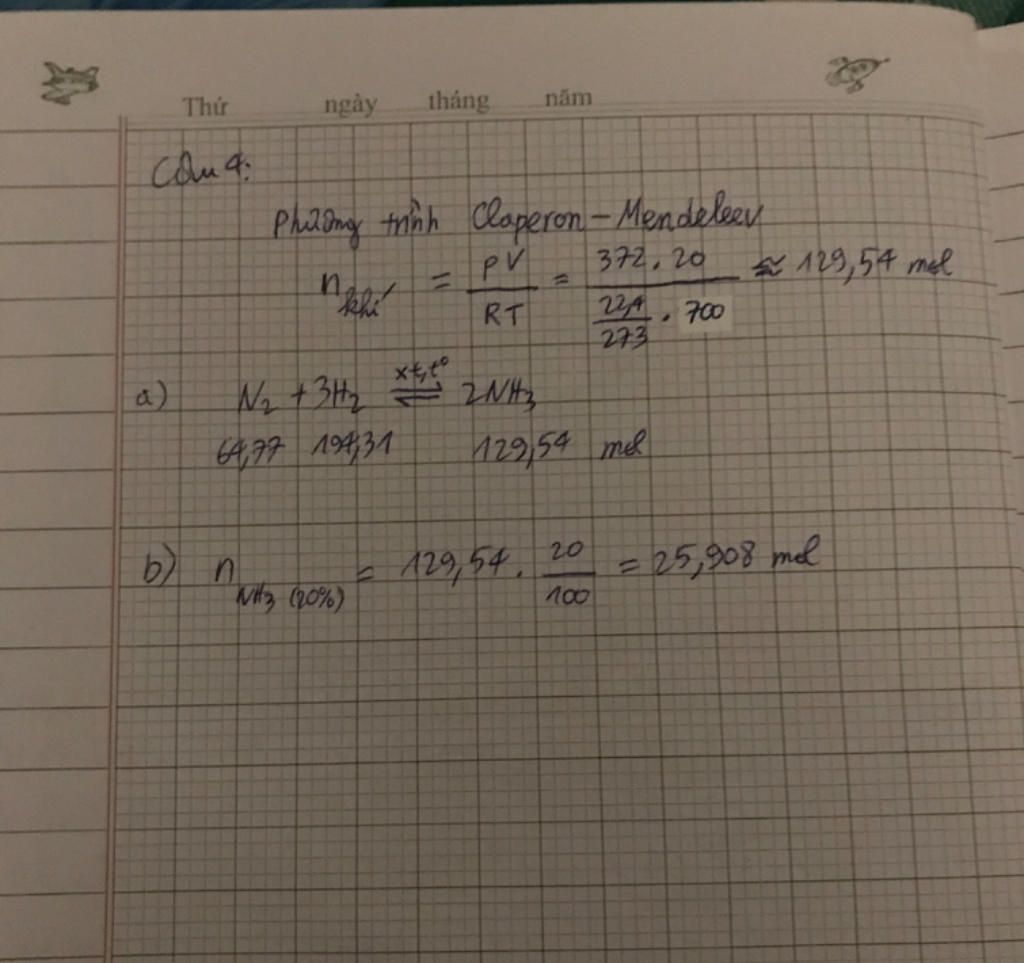 Thứ ngày tháng năm
Câu 4:
Phương trình Claperon - Mendeleev
n khí = PV / RT = 372 . 20 / (22,4 / 273 . 700) ≈ 129,54 mol
a) N2 + 3H2 ⇌ (xt, t°) 2NH3
64,77 194,31 129,54 mol
b) n NH3 (20%) = 129,54 . 20 / 100 = 25,908 mol